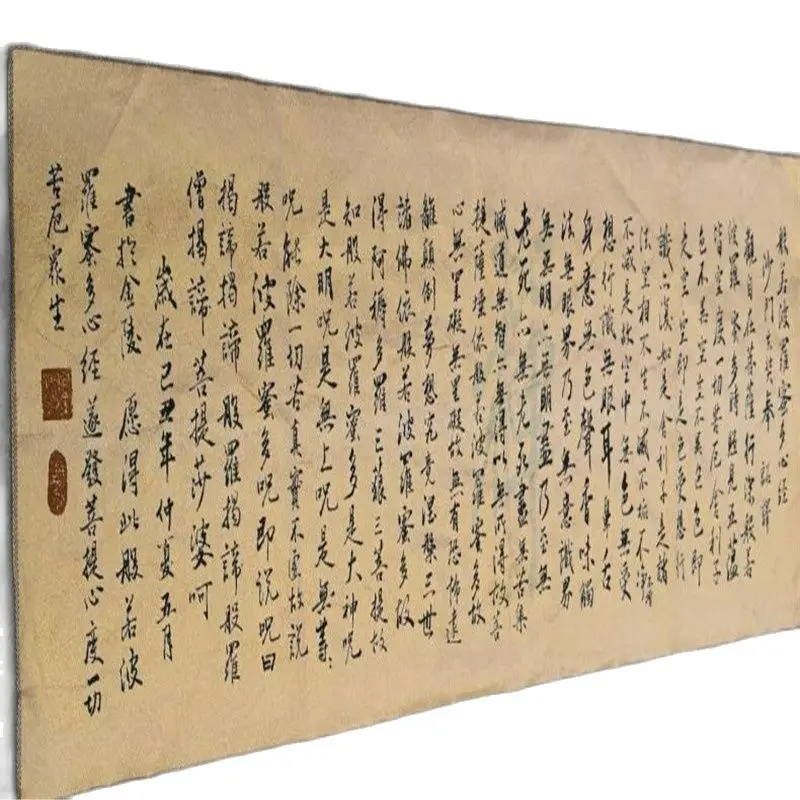 般若波羅蜜多心經
沙門玄奘奉 詔譯
觀自在菩薩行深般若
波羅蜜多時照見五蘊
皆空度一切苦厄舍利子
色不異空空不異色色即
是空空即是色受想行
識亦復如是舍利子是諸
法空相不生不滅不垢不淨不增
不減是故空中無色無受
想行識無眼耳鼻舌
身意無色聲香味觸
法無眼界乃至無意識界
無無明亦無無明盡乃至無
老死亦無老死盡無苦集
滅道無智亦無得以無所得故菩
提薩埵依般若波羅蜜多故
心無罣礙無罣礙故無有恐怖遠
離顛倒夢想究竟涅槃三世
諸佛依般若波羅蜜多故
得阿耨多羅三藐三菩提故
知般若波羅蜜多是大神呪
是大明呪是無上呪是無等=
呪能除一切苦真實不虛故說
般若波羅蜜多呪即說呪曰
揭諦揭諦 般羅揭諦般羅
僧揭諦 菩提莎婆呵
歲在己丑年仲夏五月
書於金陵 愿得此般若波
羅蜜多心經遂發菩提心度一切
苦厄衆生